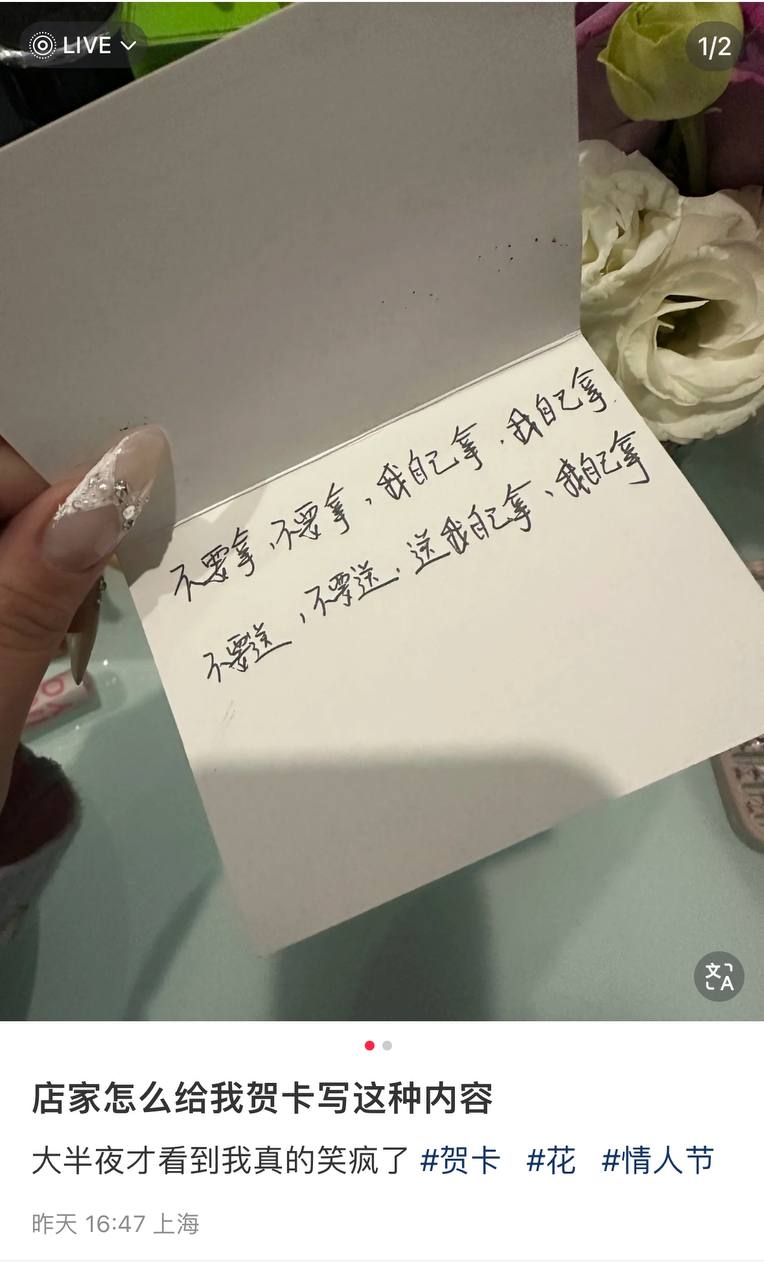 LIVE
1/2
不要拿,不要拿,我自己拿,我自己拿.
不要送,不要送.送我自己拿、我自己拿
文A
店家怎么给我贺卡写这种内容
大半夜才看到我真的笑疯了 #贺卡 #花 #情人节
昨天 16:47 上海